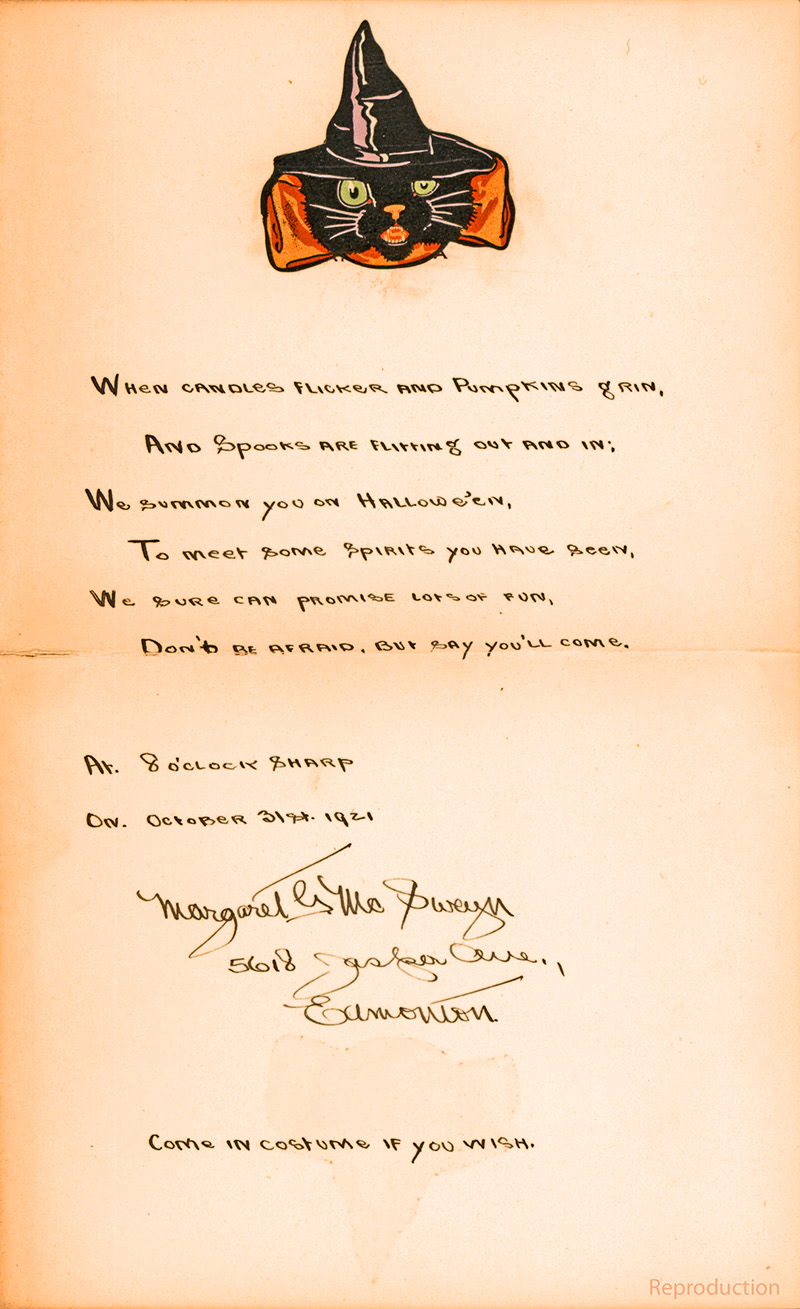 When candles flicker and Pumpkins grin,
And Spooks are flitting out and in;
We summon you on Hallowe'en,
To meet some spirits you have seen,
We sure can promise lots of fun,
Don't be afraid, but say you'll come.
At. 8 o'clock sharp
On. October 31st. 1921
Margaret G. Mc Sweyn
5618 Jasper Ave.,
Edmonton.
Come in costume if you wish.
Reproduction